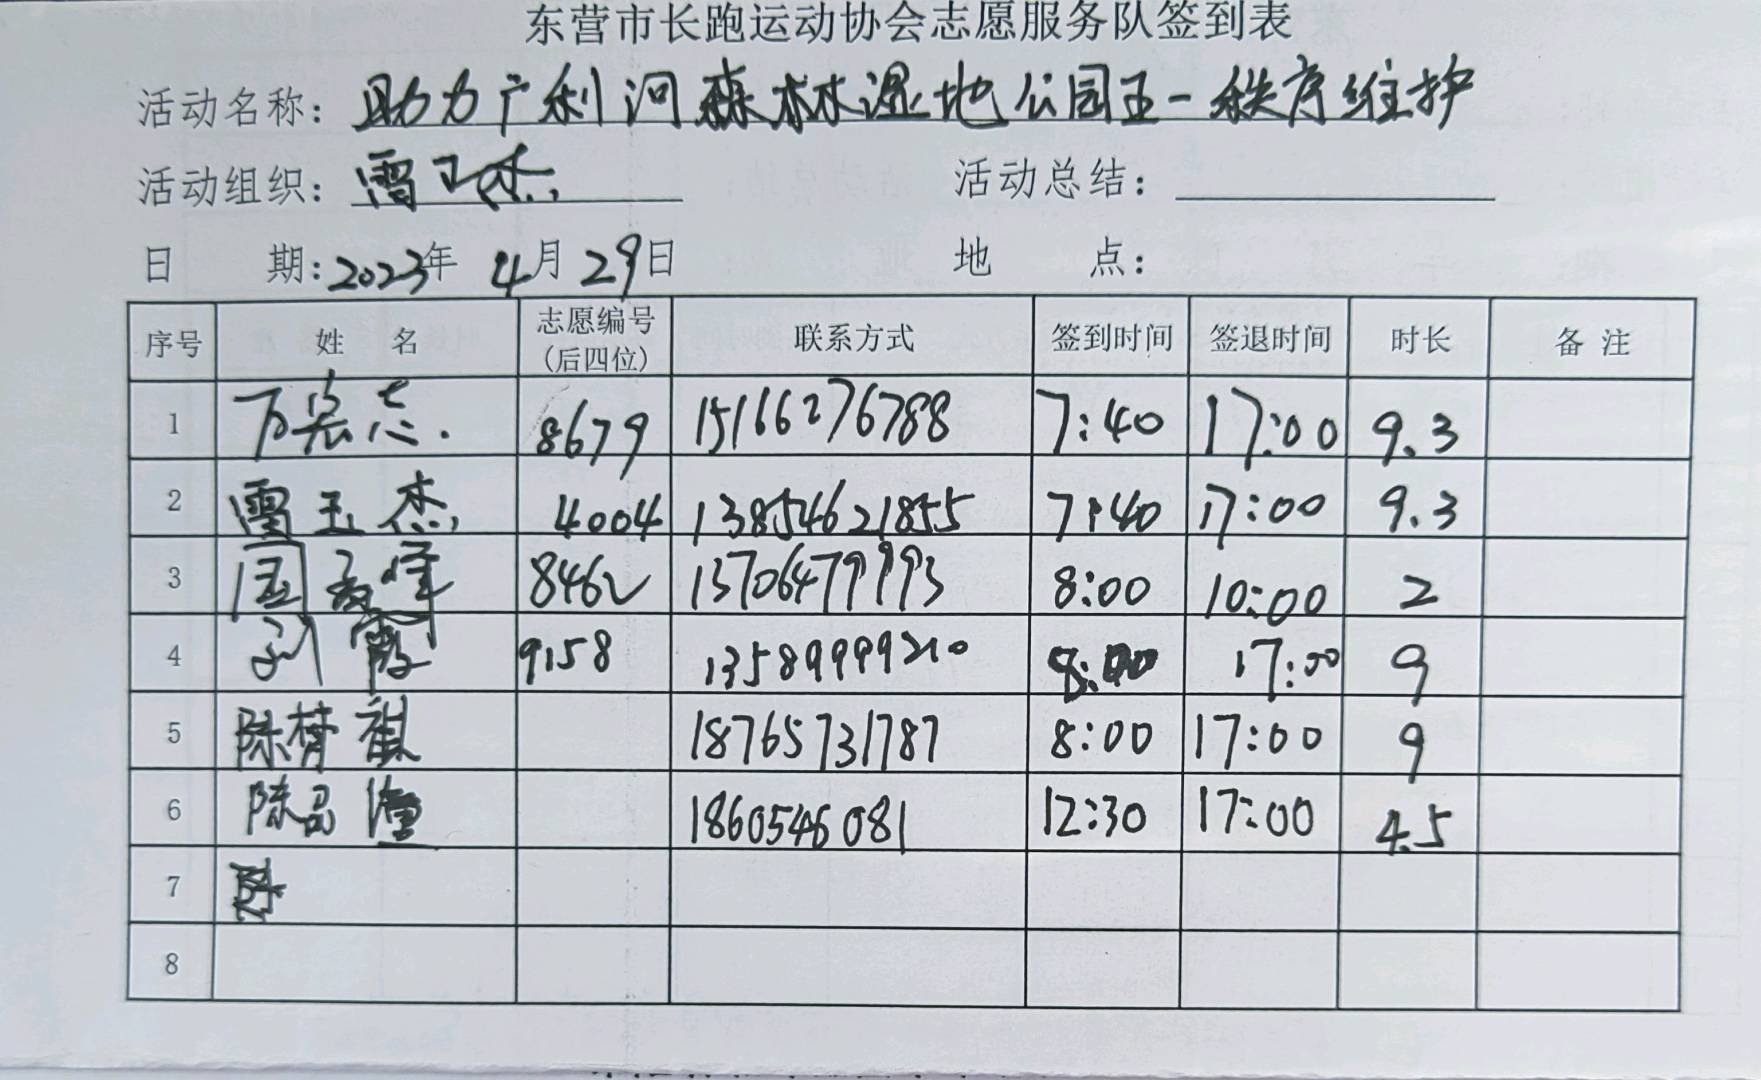 东营市长跑运动协会志愿服务队签到表
活动名称: 助力广利河森林湿地公园五一秩序维护
活动组织: 雷玉杰 活动总结:
日 期: 2023年 4月 29日 地 点:
序号 姓 名 志愿编号(后四位) 联系方式 签到时间 签退时间 时长 备 注
1 万宪志. 8679 15166276788 7:40 17:00 9.3
2 雷玉杰 4004 13854621855 7:40 17:00 9.3
3 8462 13706479993 8:00 10:00 2
4 刘霞 9158 13589999210 8:00 17:00 9
5 陈梦祺 18765731787 8:00 17:00 9
6 陈 1860546081 12:30 17:00 4.5
7
8